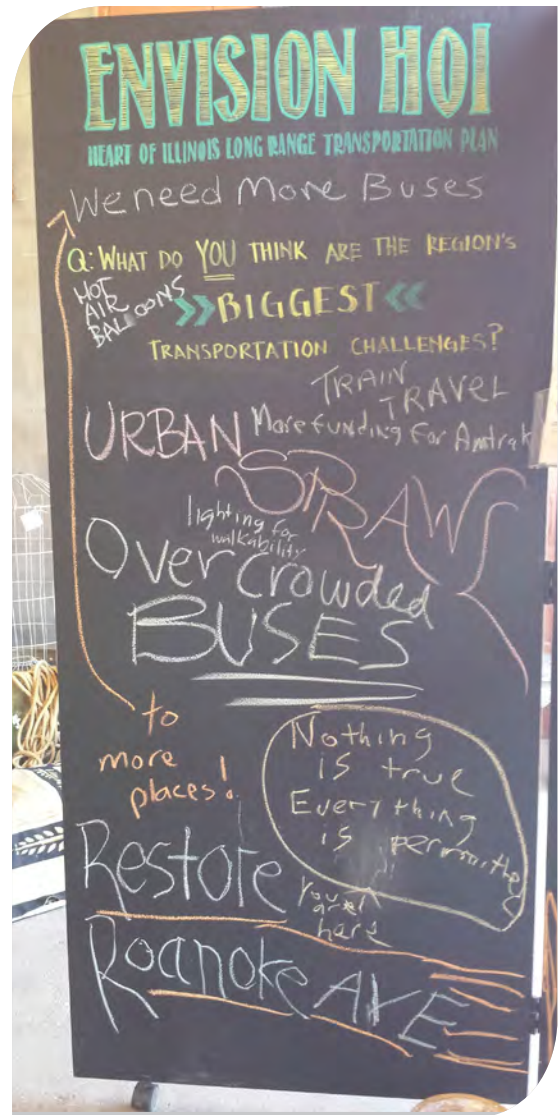 ENVISION HOI
HEART OF ILLINOIS LONG RANGE TRANSPORTATION PLAN
We need More Buses
Q: WHAT DO YOU THINK ARE THE REGION'S
HOT
AIR
BALLOONS
>> BIGGEST <<
TRANSPORTATION CHALLENGES?
TRAIN
TRAVEL
More funding For Amtrak
URBAN
SPRAWL
lighting for
walkability
Over crowded
BUSES
to
more
places!
Nothing
is true
Everything
is permitted
you
are
here
Restore
Roanoke AVE